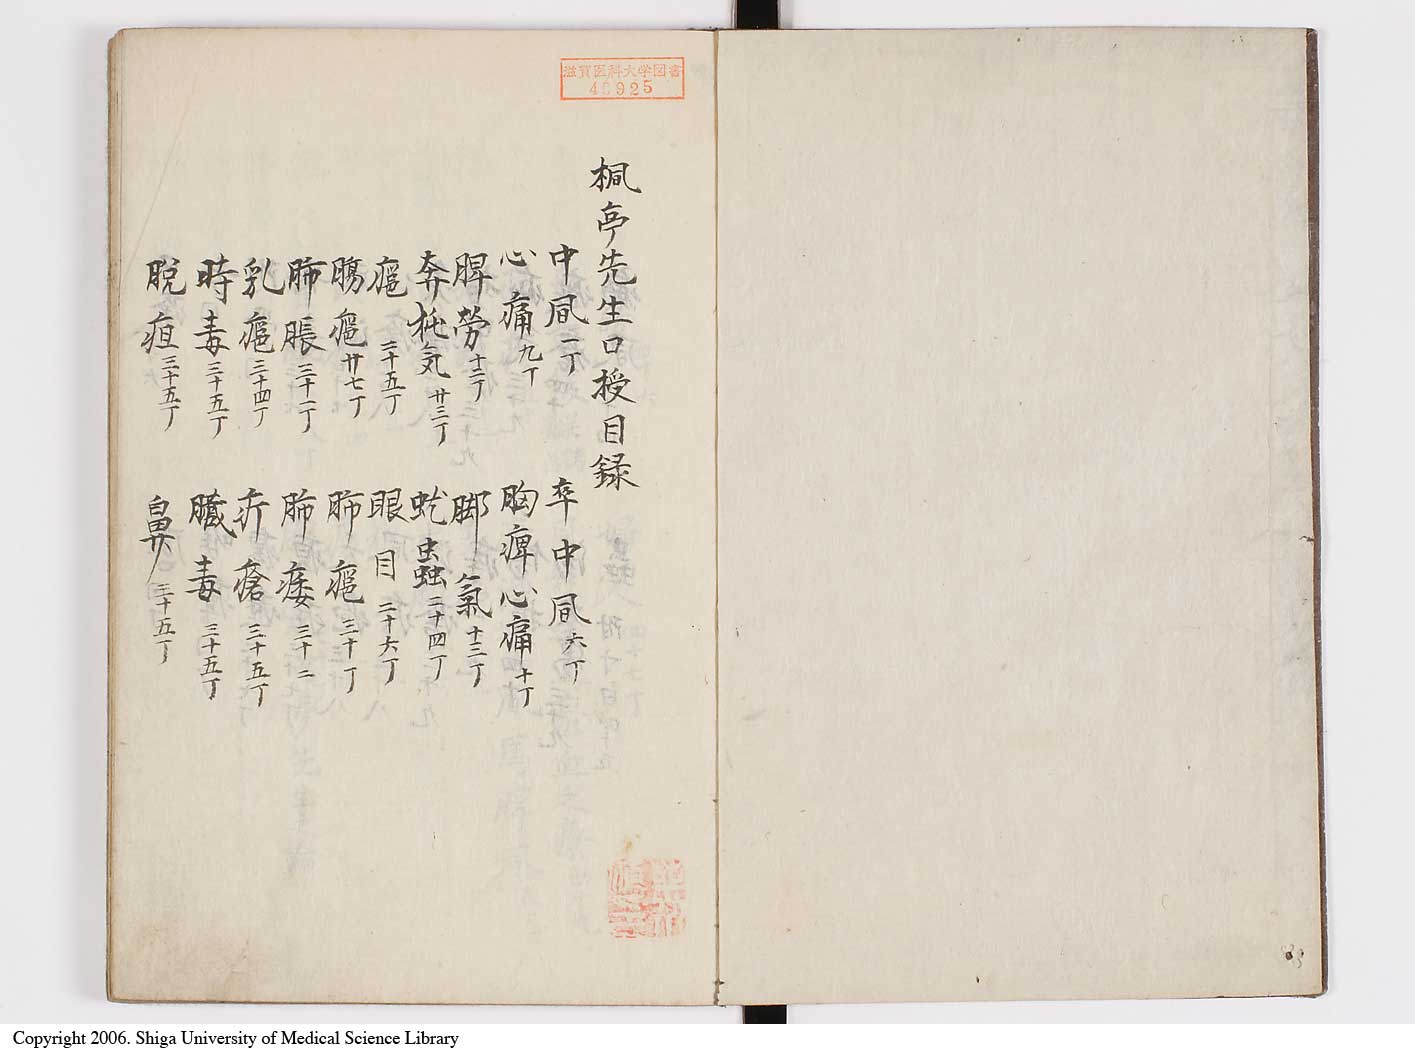 滋賀医科大学図書
桐亭先生口授目録
中風一丁 卒中風六丁
心痛九丁 胸痺心痛十丁
脾勞十二丁 脚氣十三丁
奔㹠気廿三丁 蚘蟲二十四丁
癰二十五丁 眼目二十六丁
腸癰廿七丁 肺癰三十丁
肺脹三十一丁 肺痿三十二
乳癰三十四丁 疔瘡三十五丁
時毒三十五丁 臓毒三十五丁
脱疽三十五丁 鼻三十五丁
Copyright 2006. Shiga University of Medical Science Library